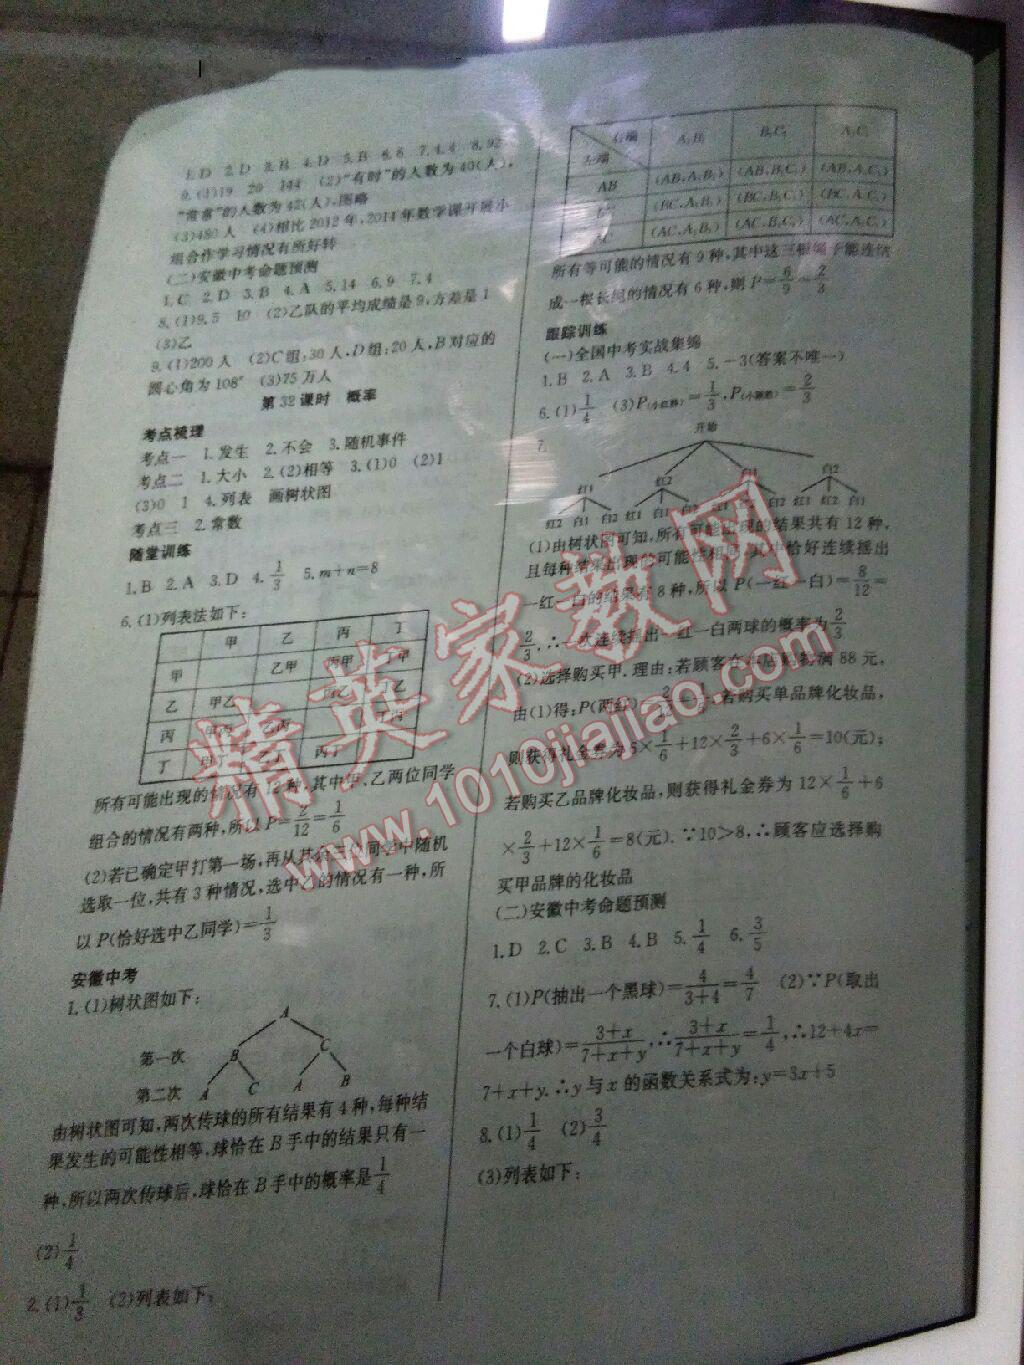 1.D 2.D 3.B 4.D 5.B 6.6 7.4.4 8.92
9.(1)19 20 144 (2)“有时”的人数为40(人),
“常常”的人数为42(人),图略
(3)480人 (4)相比2012年,2014年数学课开展小
组合作学习情况有所好转
(二)安徽中考命题预测
1.C 2.D 3.B 4.A 5.14 6.9 7.4
8.(1)9.5 10 (2)乙队的平均成绩是9,方差是1
(3)乙
9.(1)200人 (2)C组:30人,D组:20人,B对应的
圆心角为108° (3)75万人
第32课时 概率
考点梳理
考点一 1.发生 2.不会 3.随机事件
考点二 1.大小 2.(2)相等 3.(1)0 (2)1
(3)0 1 4.列表 画树状图
考点三 2.常数
随堂训练
1.B 2.A 3.D 4.1/3 5.m+n=8
6.(1)列表法如下:
甲 乙 丙 丁
甲 乙甲 丙甲 甲
乙 甲乙 乙 乙
丙 甲丙 乙丙 丁丙
丁 甲丁 丙丁
所有可能出现的情况有12种,其中甲、乙两位同学
组合的情况有两种,所以P=2/12=1/6
(2)若已确定甲打第一场,再从其余三位同学中随机
选取一位,共有3种情况,选中乙的情况有一种,所
以P(恰好选中乙同学)=1/3
安徽中考
1.(1)树状图如下:
A
第一次 B C
第二次 A C A B
由树状图可知,两次传球的所有结果有4种,每种结
果发生的可能性相等,球恰在B手中的结果只有一
种,所以两次传球后,球恰在B手中的概率是1/4
(2)1/4
2.(1)1/3 (2)列表如下:
右端 A₁B₁ B₁C₁ A₁C₁
左端
AB (AB,A₁B₁) (AB,B₁C₁) (AB,A₁C₁)
BC (BC,A₁B₁) (BC,B₁C₁) (BC,A₁C₁)
AC (AC,A₁B₁) (AC,B₁C₁) (AC,A₁C₁)
所有等可能的情况有9种,其中这三根绳子能连结
成一根长绳的情况有6种,则P=6/9=2/3
跟踪训练
(一)全国中考实战集锦
1.B 2.A 3.B 4.4 5.-3(答案不唯一)
6.(1)1/4 (3)P =1/3,P =2/3
7. 开始
红1 红2 白1 白2
红2 白1 白2 红1 白1 白2 红1 红2 白2 红1 红2 白1
(1)由树状图可知,所有可能出现的结果共有12种,
且每种结果出现的可能性相同,其中恰好连续摇出
一红一白的结果有8种,所以P(一红一白)=8/12=
2/3,∴一次连续摇出一红一白两球的概率为2/3
(2)选择购买甲.理由:若顾客在本店购物满88元,
由(1)得:P(两红)=2/12=1/6,若购买单品牌化妆品,
则获得礼金券为6×1/6+12×2/3+6×1/6=10(元);
若购买乙品牌化妆品,则获得礼金券为12×1/6+6
×2/3+12×1/6=8(元).∵10>8,∴顾客应选择购
买甲品牌的化妆品
(二)安徽中考命题预测
1.D 2.C 3.B 4.B 5.1/4 6.3/5
7.(1)P(抽出一个黑球)=4/(3+4)=4/7 (2)∵P(取出
一个白球)=(3+x)/(7+x+y),∴(3+x)/(7+x+y)=1/4,∴12+4x=
7+x+y.∴y与x的函数关系式为:y=3x+5
8.(1)1/4 (2)3/4
(3)列表如下:
精英家教网
www.1010jiajiao.com